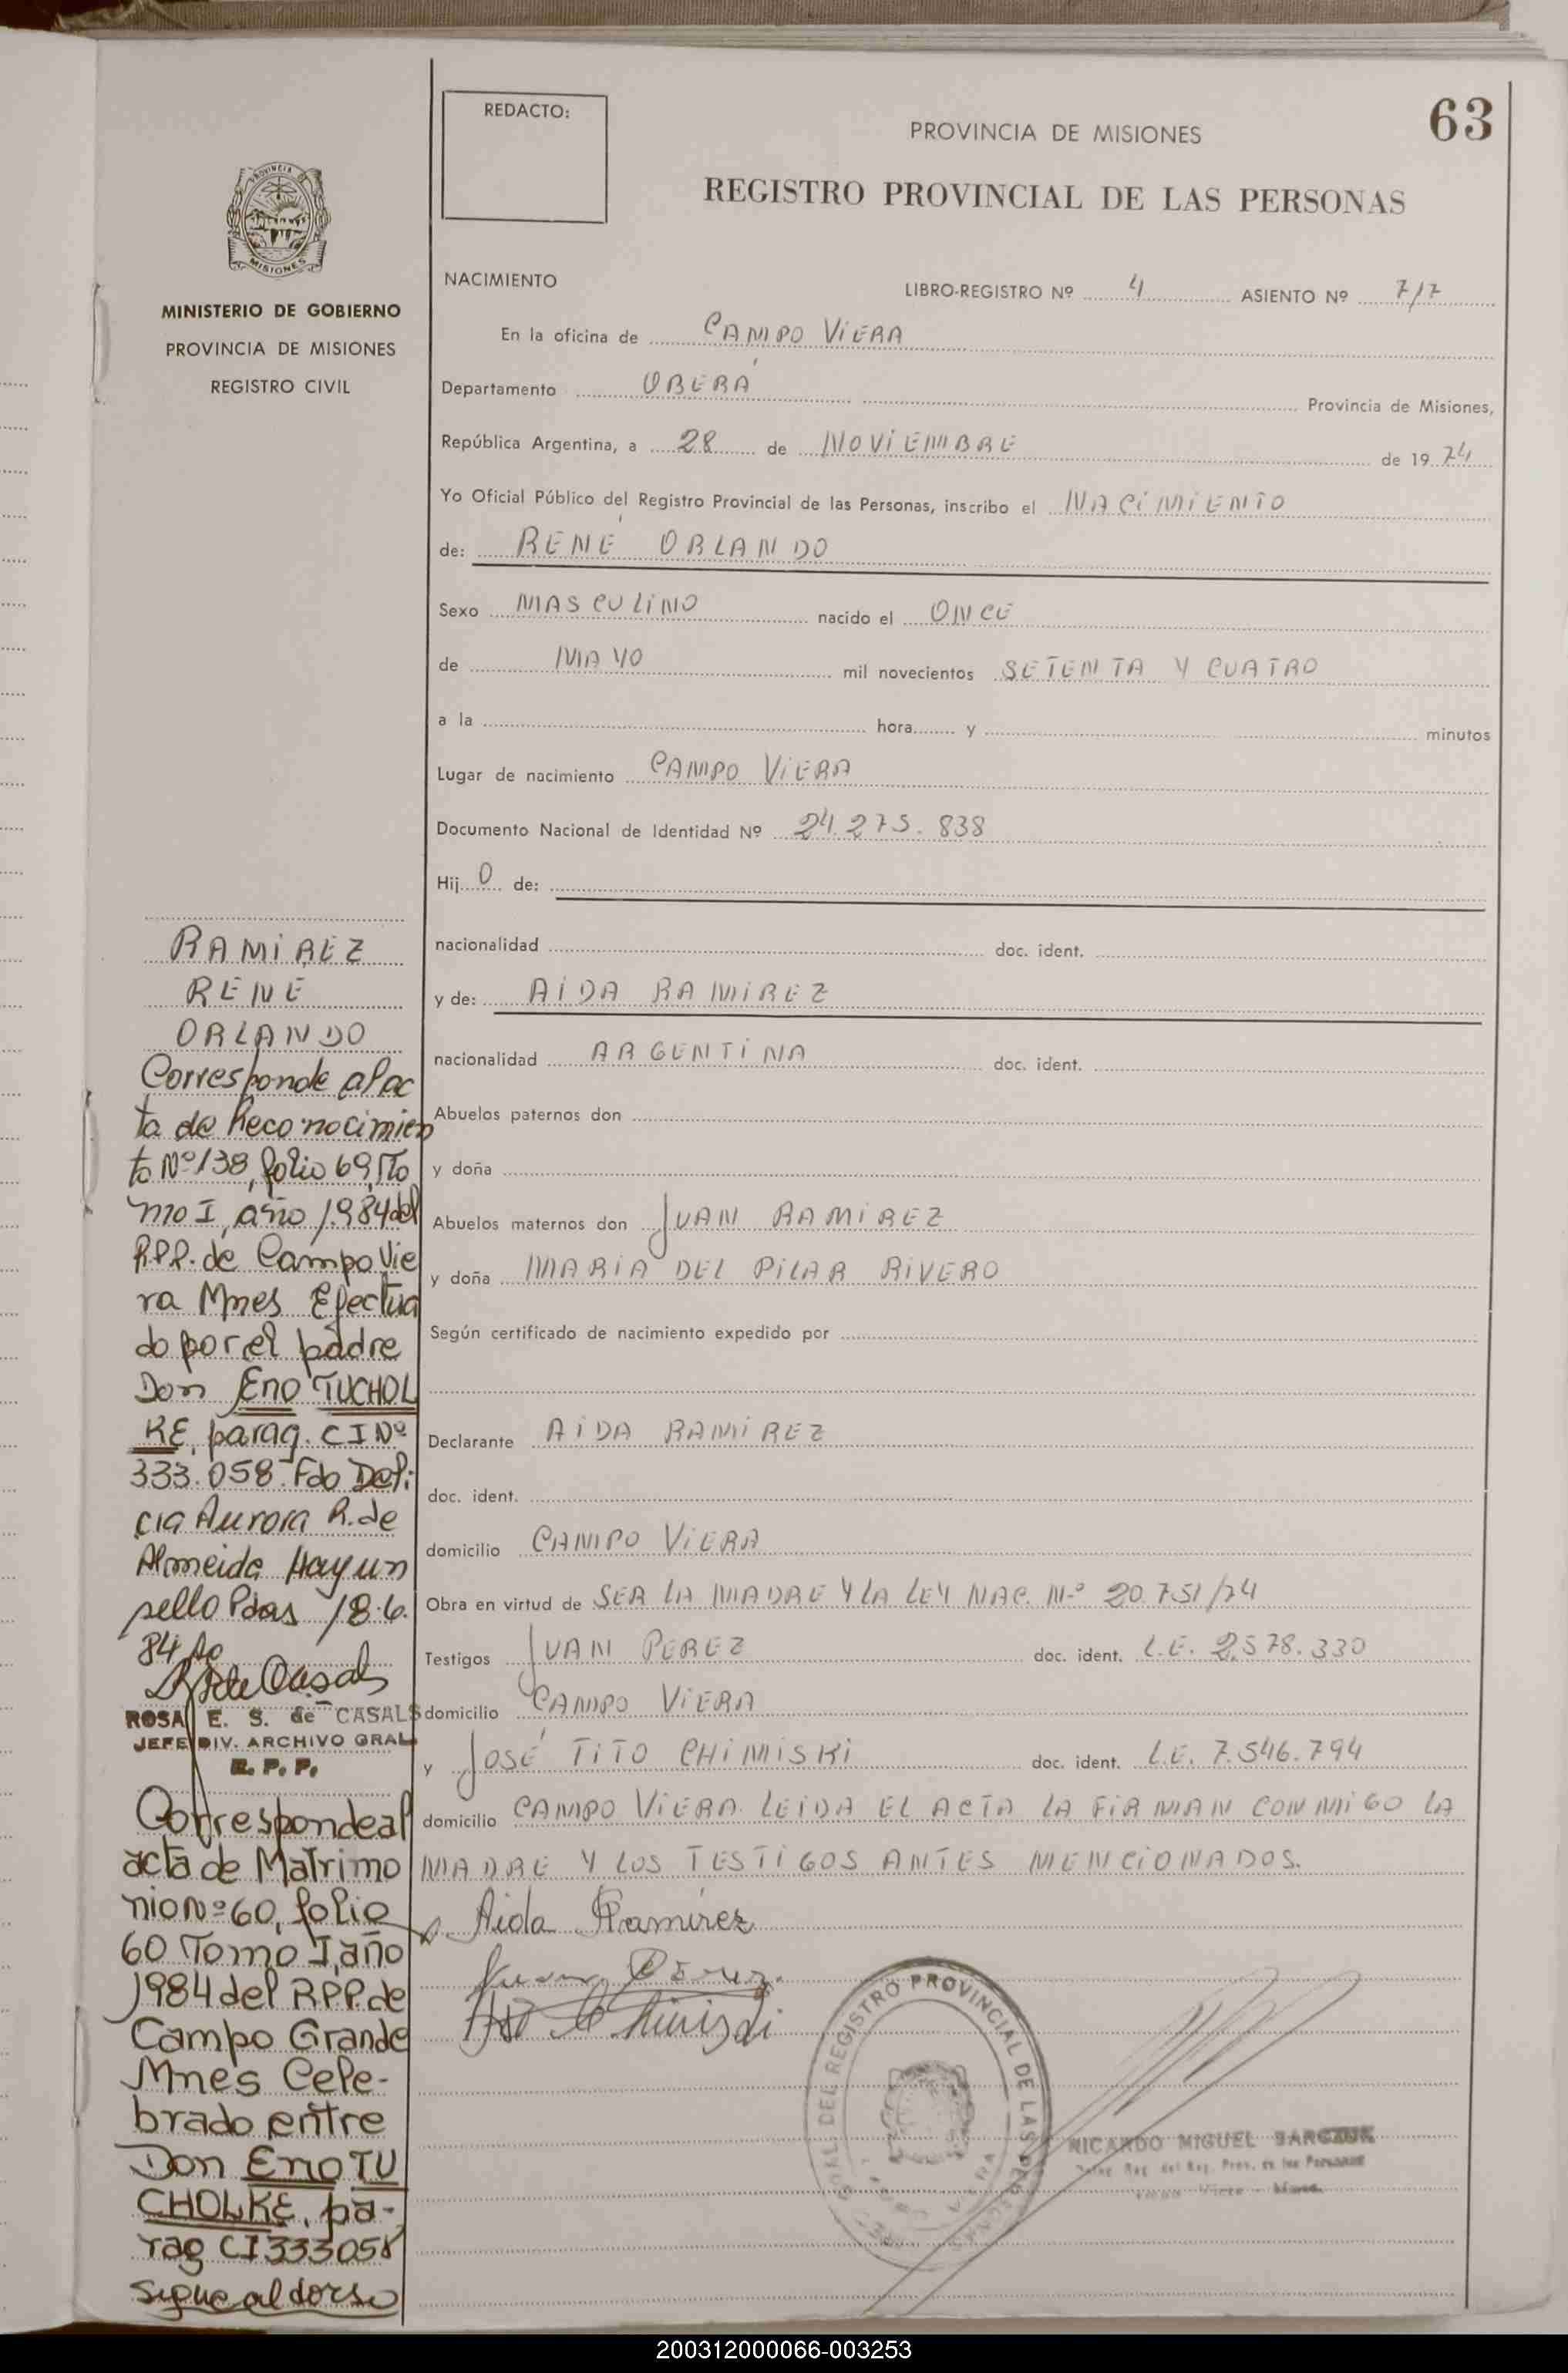 63
REDACTO:
PROVINCIA DE MISIONES
REGISTRO PROVINCIAL DE LAS PERSONAS
PROVINCIA
MISIONES
MINISTERIO DE GOBIERNO
PROVINCIA DE MISIONES
REGISTRO CIVIL
NACIMIENTO LIBRO-REGISTRO Nº 4 ASIENTO Nº 717
En la oficina de CAMPO VIERA
Departamento OBERÁ Provincia de Misiones,
República Argentina, a 28 de NOVIEMBRE de 19 74
Yo Oficial Público del Registro Provincial de las Personas, inscribo el NACIMIENTO
de: RENÉ ORLANDO
Sexo MASCULINO nacido el ONCE
de MAYO mil novecientos SETENTA Y CUATRO
a la hora y minutos
Lugar de nacimiento CAMPO VIERA
Documento Nacional de Identidad Nº 24.275.838
Hij O de:
nacionalidad doc. ident.
y de: AIDA RAMIREZ
nacionalidad ARGENTINA doc. ident.
Abuelos paternos don
y doña
Abuelos maternos don JUAN RAMIREZ
y doña MARIA DEL PILAR RIVERO
Según certificado de nacimiento expedido por
Declarante AIDA RAMIREZ
doc. ident.
domicilio CAMPO VIERA
Obra en virtud de SER LA MADRE Y LA LEY NAC. Nº 20.751/74
Testigos JUAN PEREZ doc. ident. L.E. 2.578.330
domicilio CAMPO VIERA
y JOSÉ TITO CHIMISKI doc. ident. L.E. 7.546.794
domicilio CAMPO VIERA. LEIDA EL ACTA LA FIRMAN CONMIGO LA
MADRE Y LOS TESTIGOS ANTES MENCIONADOS.
Aida Ramírez
RAMIREZ
RENÉ
ORLANDO
Corresponde al ac
ta de Reconocimien
to Nº 138, folio 69, To
mo I, año 1.984 del
R.P.P. de Campo Vie
ra Mnes Efectua
do por el padre
Don ENO TUCHOL
KE, parag. CI Nº
333.058. Fdo Deli
cia Aurora R. de
Almeida Hay un
sello Pdas 18.6.
84
ROSA E. S. de CASALS
JEFE DIV. ARCHIVO GRAL
R. P. P.
Corresponde al
acta de Matrimo
nio Nº 60, folio
60 Tomo I, año
1984 del RPP. de
Campo Grande
Mnes Cele-
brado entre
Don ENO TU
CHOLKE, pa-
rag CI 333058
sigue al dorso
GRAL. DEL REGISTRO PROVINCIAL DE LAS PERSONAS
RICARDO MIGUEL
200312000066-003253